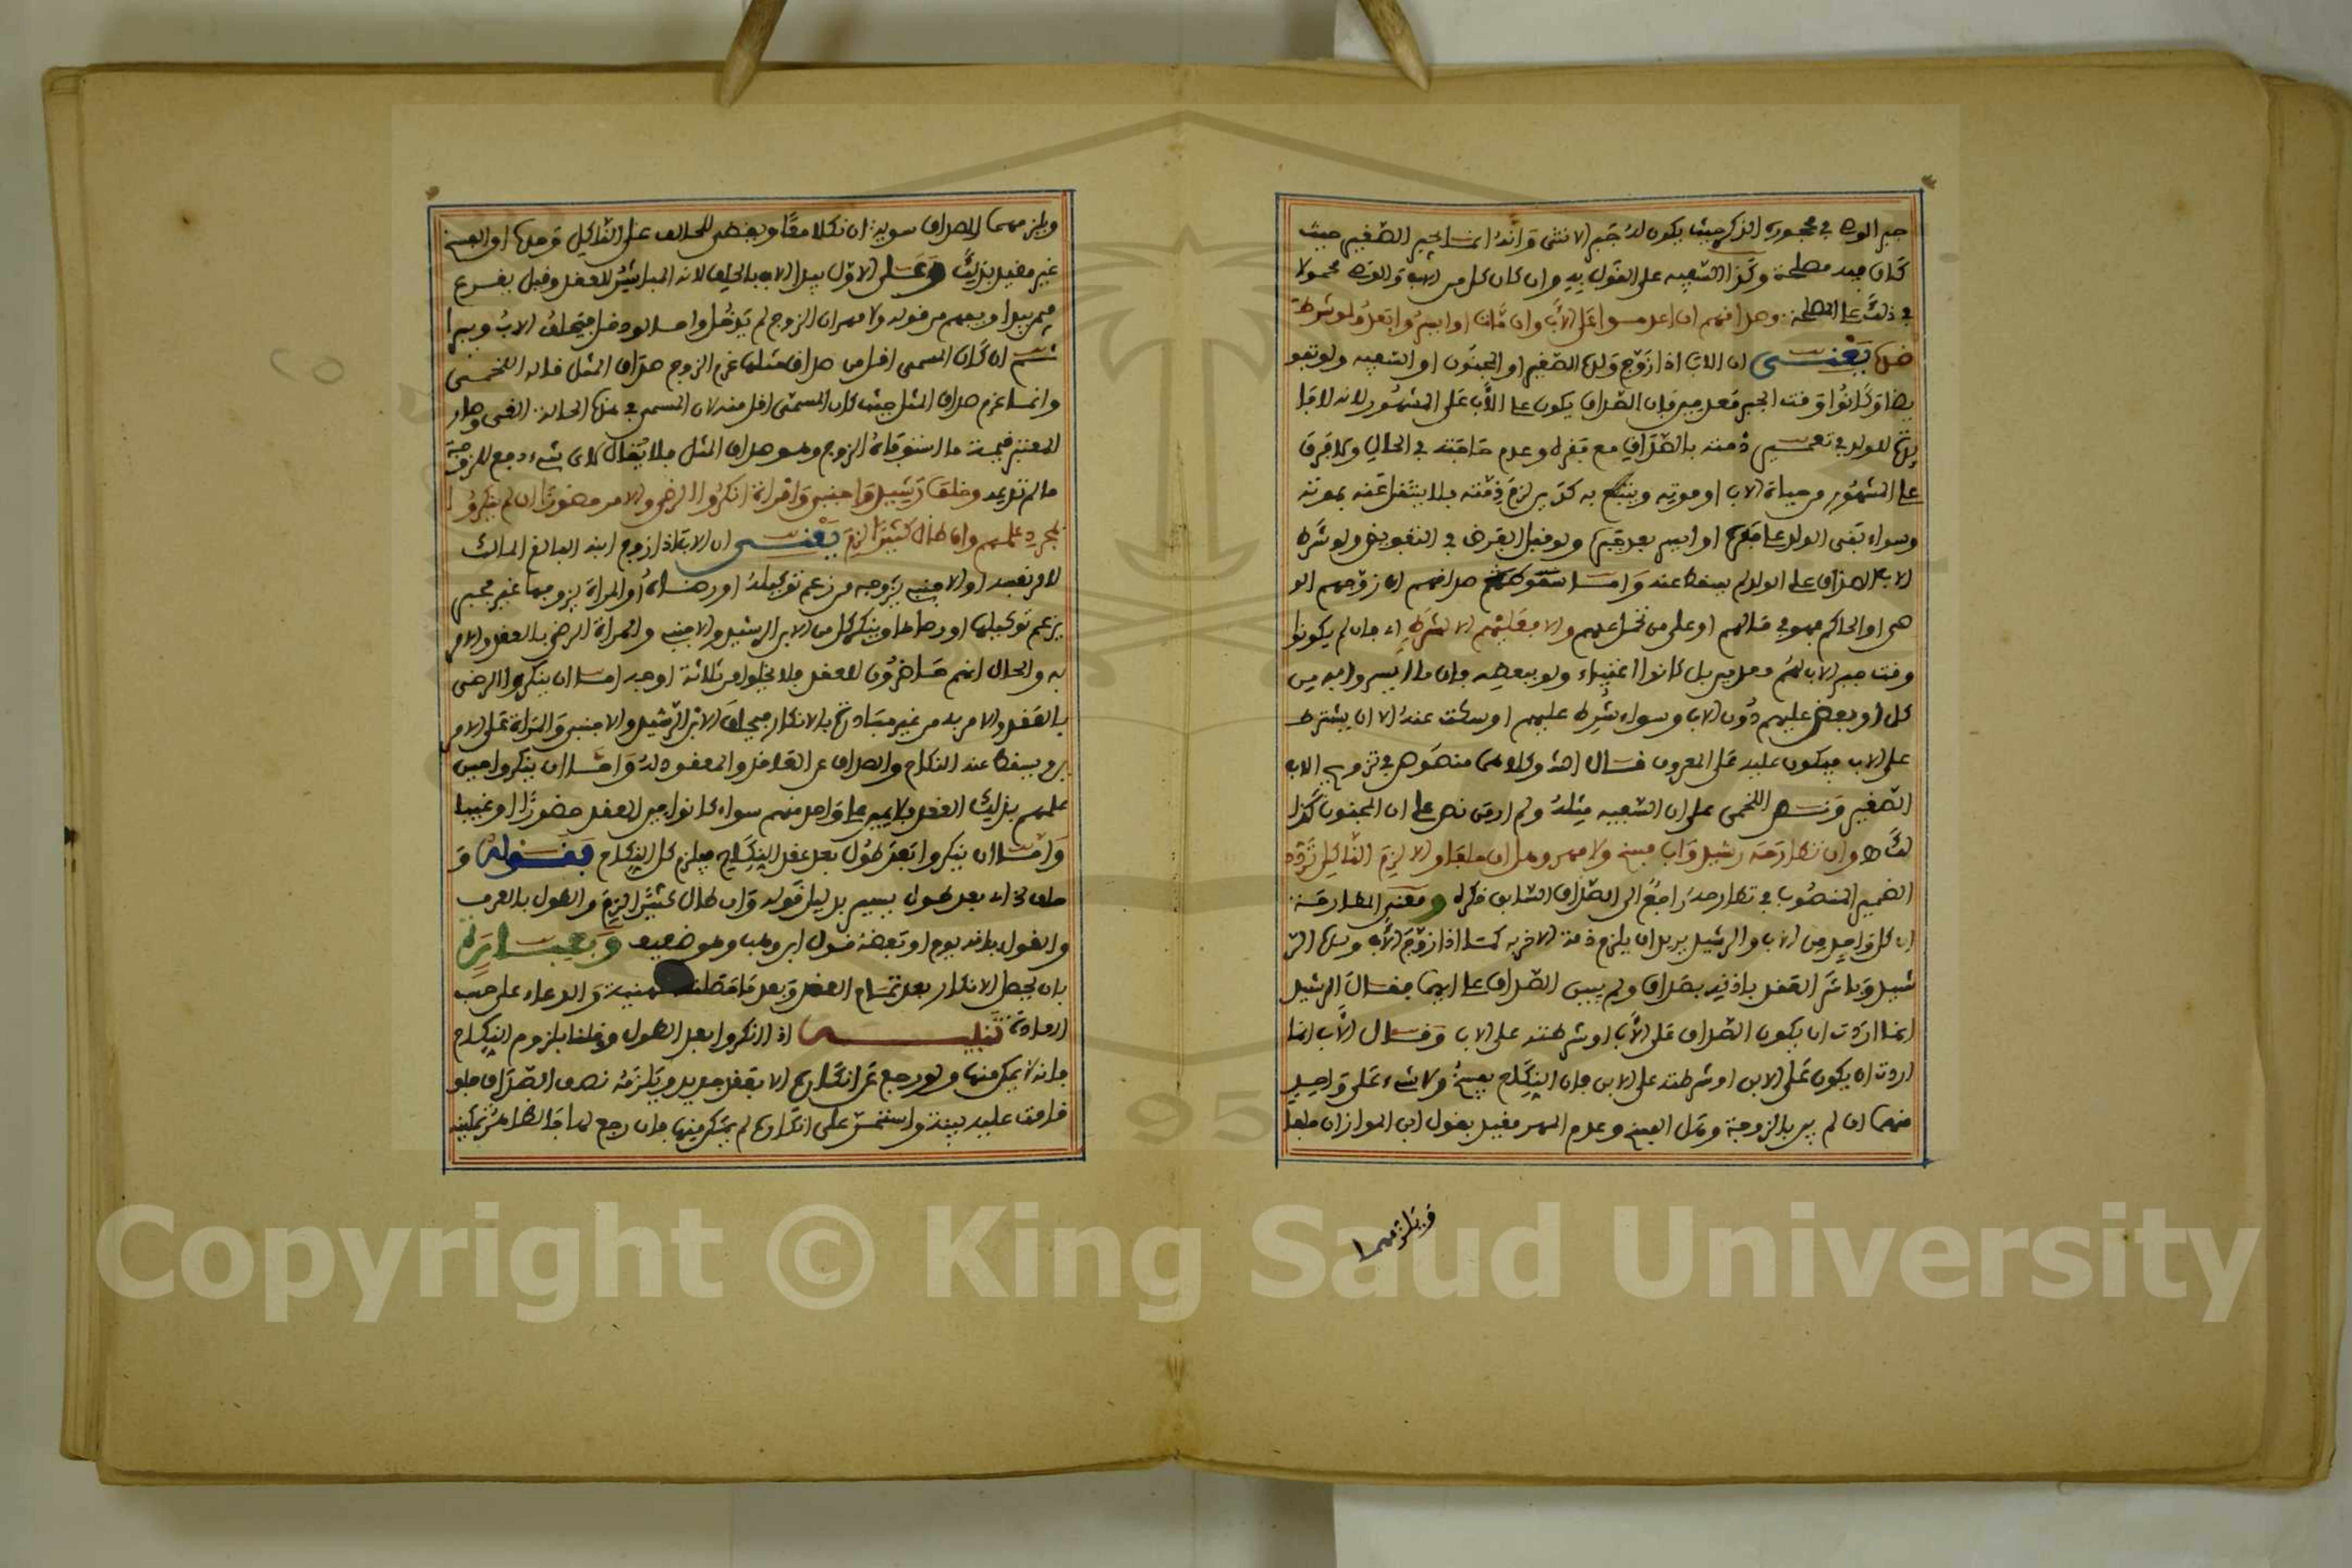 جبر الوصي في محجوره الذكر حيث يكون له جبر الانثى وانه انما يجبر الصغير حيث
كان فيه مصلحة وكذا السفيه على القول به وان كان كل من الاب والوصي محمولا
في ذلك على المصلحة وصداقهم ان اعدموا على الاب وان مات او ايسروا بعد ولو شرط
ضده يعني ان الاب اذا زوج ولده الصغير او المجنون او السفيه ولو تفويضا
وكانوا وقت الجبر معدمين فان الصداق يكون على الاب على المشهور لانه
للولد في تعمير ذمته بالصداق مع فقره وعدم حاجته في الحال ولا فرق
على المشهور من حياة الاب او موته ويتبع به كدين لزم ذمته فلا ينتقل عنه بموته
وسواء بقي الولد على فقره او ايسر بعد يتيم ولو قبل الفرض في التفويض ولو شرط
الاب الصداق على الولد لم يسقط عنه واما صداقهم ان زوجهم الو
صي او الحاكم فهو في مالهم او على من تحمل عنهم والا فعليهم الا لشرط اي فان لم يكونوا
وقت جبر الاب لهم معدمين بل كانوا اغنياء ولو ببعضه فان ما ايسروا به من
كل او بعض عليهم دون الاب وسواء شرط عليهم او سكت عنه الا ان يشترط
على الاب فيكون عليه على المعروف قال وكلامهما منصوص في تزويج الاب
الصغير ونص اللخمي على ان السفيه مثله ولم ار من نص على ان المجنون كذا
لك وان تطارحه رشيد واب فسخ ولا مهر وهل ان حلفا والا لزم الناكل تردد
الضمير المنصوب في تطارحه راجع الى الصداق السابق ذكره ومعنى المطارحة
ان كل واحد من الاب والرشيد يريد ان يلزم ذمة الاخر به كما اذا زوج الاب ولده الر
شيد وباشر العقد باذنه بصداق ولم يبين الصداق على ايهما فقال الرشيد
انما اردت ان يكون الصداق على الاب او شرطته على الاب وقال الاب انما
اردت ان يكون على الابن او شرطته على الابن فان النكاح يفسخ ولا شيء على واحد
منهما ان لم يدخل بالزوجة وهل الفسخ وعدم المهر مقيد بقول ابن المواز ان حلفا
ويلزمهما
ويلزمهما الصداق سوية ان نكلا معا ويقضى للحالف على الناكل وحده او الفسخ
غير مقيد بذلك وعلى الاول يبدا الاب بالحلف لانه المباشر للعقد وقيل يقرع
فيمن يبدا ويفهم من قوله ولا مهر ان الزوج لم يدخل واما لو دخل فيحلف الاب ويبرا
ثم ان كان المسمى اقل من صداق مثلها غرم الزوج صداق المثل قاله اللخمي
وانما غرم صداق المثل حيث كان المسمى اقل منه لان المسمى في هذه الحالة الغي وصار
المعتبر قيمة ما استوفاه الزوج وهو صداق المثل فلا يقال لاي شيء دفع للزوجة
ما لم تدعه وحلف رشيد واجنبي وامراة انكروا الرضى والامر حضورا ان لم ينكروا
بمجرد علمهم وان طال كثيرا لزم يعني ان الاب اذا زوج ابنه البالغ المالك
لامر نفسه او الاجنبي يزوجه من زعم توكيله او رضاه او المراة يزوجها غير مجبر
يزعم توكيلها او رضاها وينكر كل من الابن الرشيد والاجنبي والمراة الرضى بالعقد والامر
به والحال انهم حاضرون للعقد فلا يخلوا من ثلاثة اوجه اما ان ينكروا الرضى
بالعقد والامر به من غير مبادرة بالانكار فيحلف الابن الرشيد والاجنبي والمراة على الامر
ين ويسقط عنه النكاح والصداق عن العاقد والمعقود له واما ان ينكروا حين
علمهم بذلك العقد فلا يمين على واحد منهم سواء كانوا حين العقد حضورا او غيبا
واما ان ينكروا بعد طول بعد عقد النكاح فيلزم كل النكاح فقوله و
حلف اي بعد طول يسير بدليل قوله وان طال كثيرا لزم والطول بالعرف
والقول بانه يوم او بعضه قول ابن وهب وهو ضعيف
بان يحصل الانكار بعد تمام العقد وبعد تهنية والدعاء على حسب
العادة تنبيه اذا انكروا بعد الطول وقلنا بلزوم النكاح
فانه لا يمكن منها ولو رجع عن انكاره الا بعقد جديد ويلزمه نصف الصداق فلو
قامت عليه بينة واستمر على انكاره لم يمكن منها فان رجع لها فالظاهر تمكينه